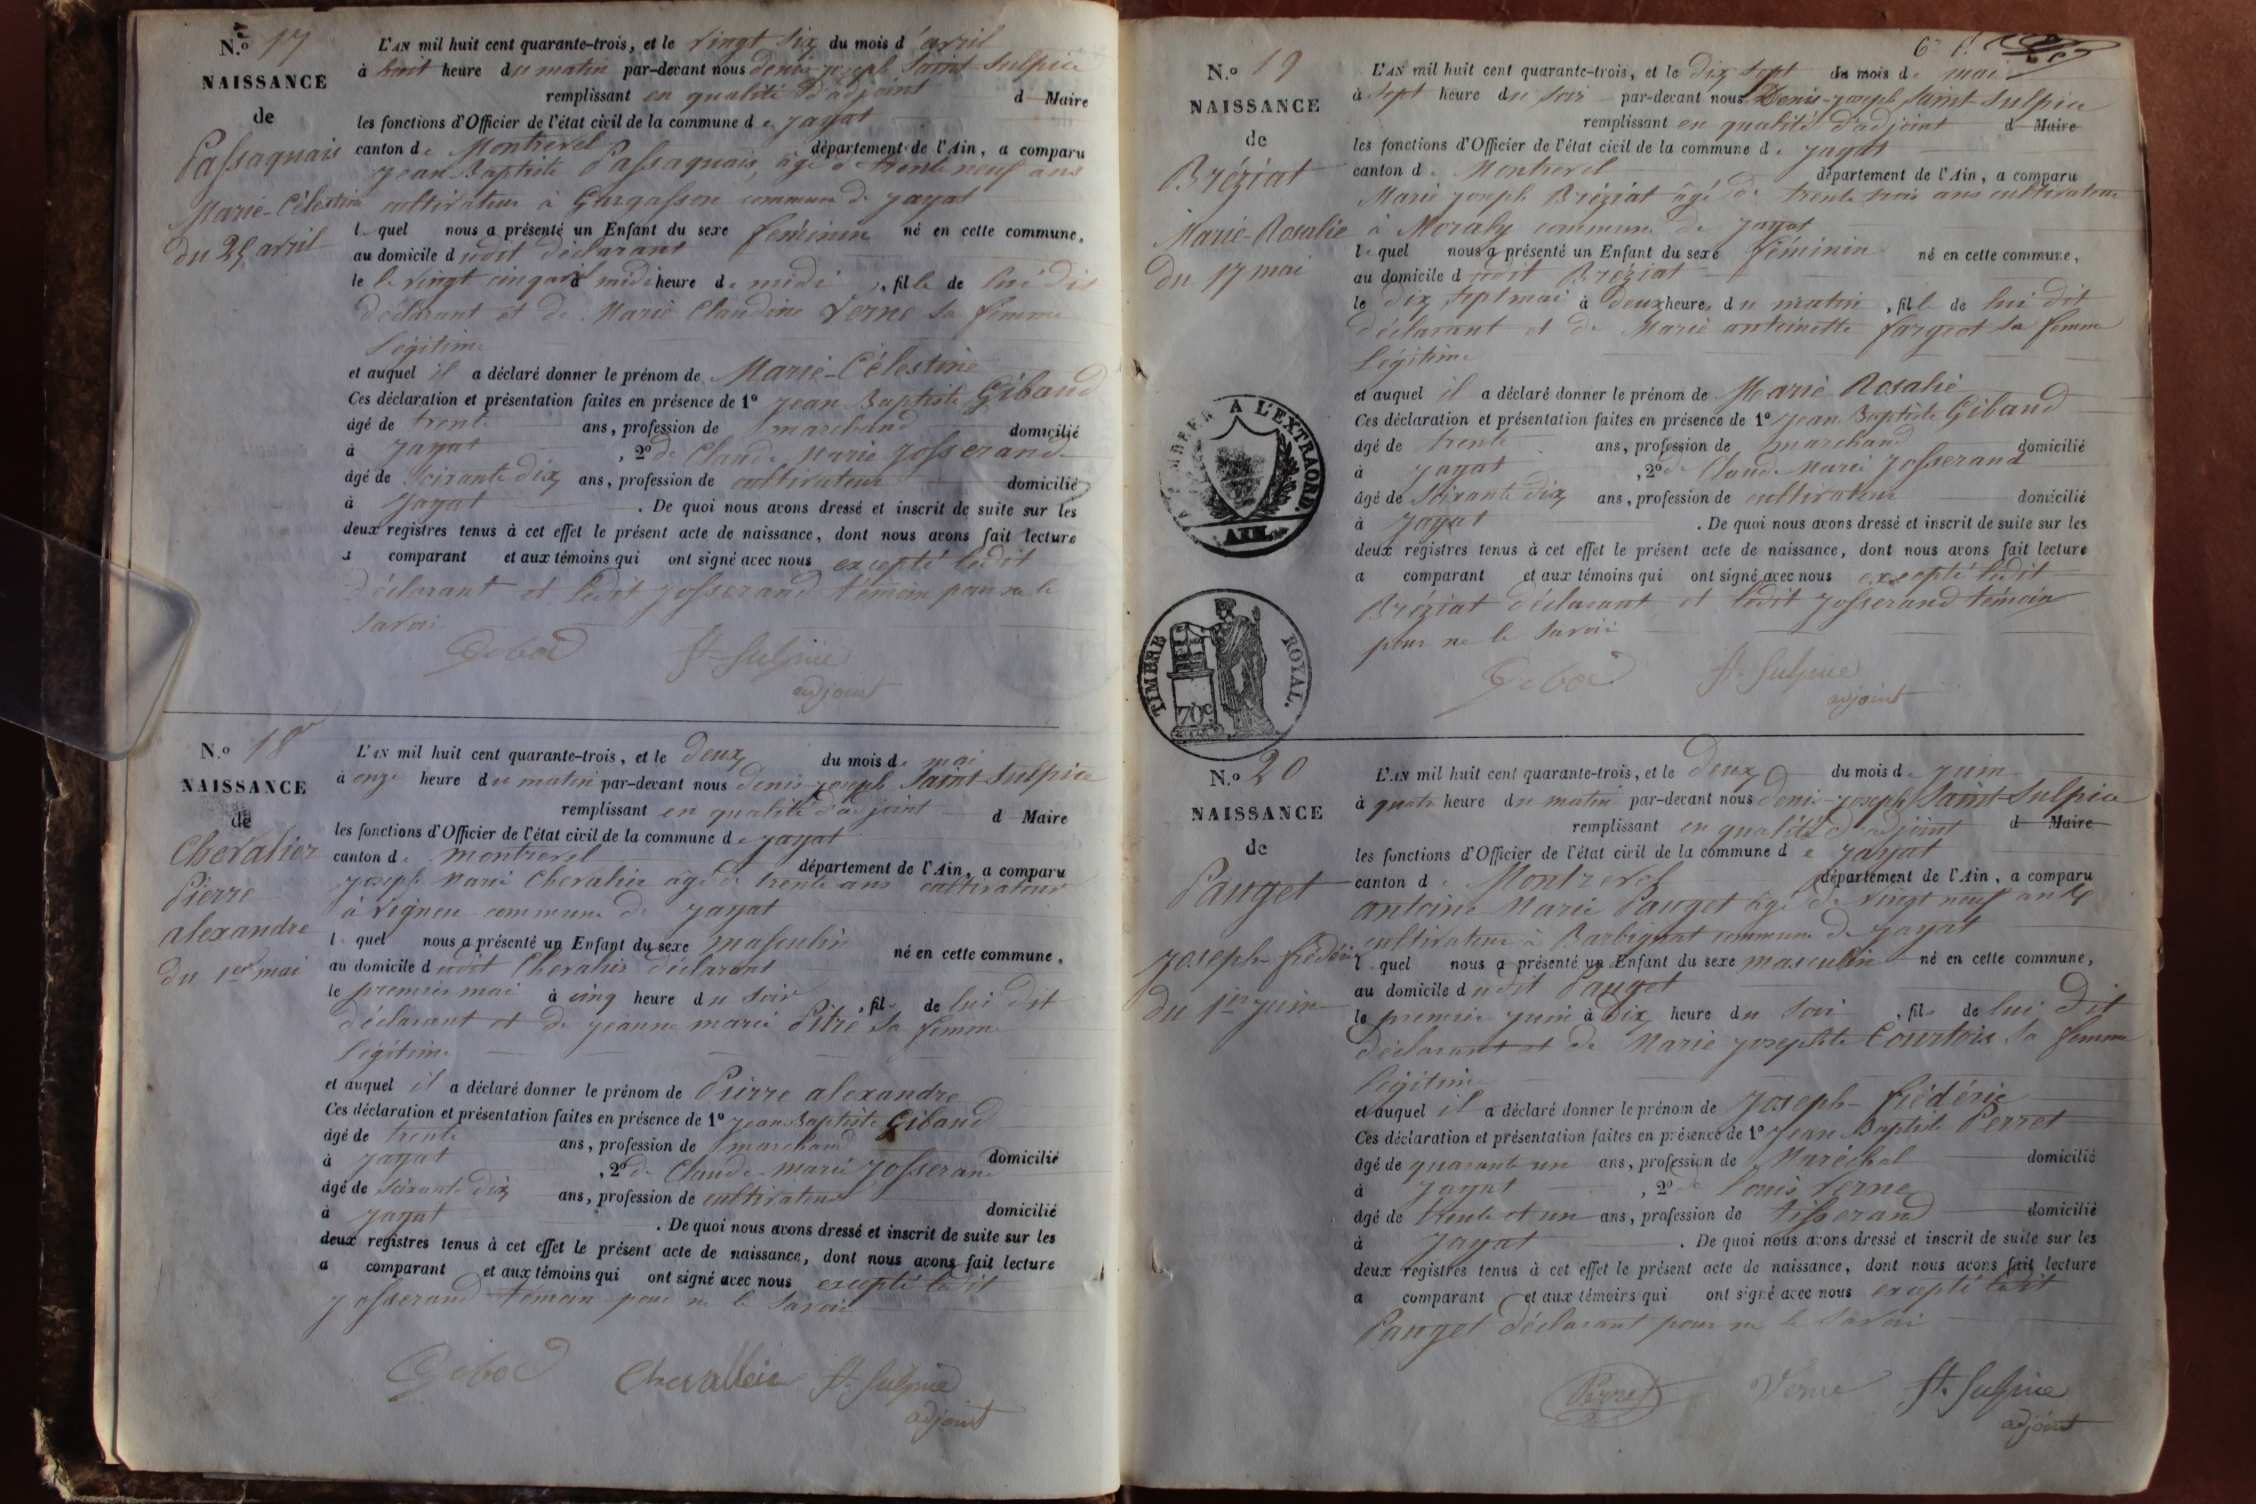 N.o 17
NAISSANCE
de
Passaquais
Marie-Célestine
du 25 avril
L'AN mil huit cent quarante-trois, et le vingt six du mois d'avril
à huit heure du matin par-devant nous denis-joseph Saint-Sulpice
remplissant en qualité d'adjoint d Maire
les fonctions d'Officier de l'état civil de la commune de jayat
canton de Montrevel département de l'Ain, a comparu
jean Baptiste Passaquais, âgé de trente neuf ans
cultivateur à Gargasson commune de jayat
lequel nous a présenté un Enfant du sexe féminin né en cette commune,
au domicile dudit déclarant
le le vingt cinq avril à midi heure de midi, fille de lui dit
déclarant et de Marie Claudine Verne sa femme
légitime
et auquel il a déclaré donner le prénom de Marie-Célestine
Ces déclaration et présentation faites en présence de 1o jean Baptiste Gibaud
âgé de trente ans, profession de marchand domicilié
à jayat, 2o de Claude Marie Josserand
âgé de soixante dix ans, profession de cultivateur domicilié
à jayat. De quoi nous avons dressé et inscrit de suite sur les
deux registres tenus à cet effet le présent acte de naissance, dont nous avons fait lecture
a comparant et aux témoins qui ont signé avec nous excepté ledit
déclarant et ledit josserand témoin pour ne le
savoir
St-Sulpice
adjoint
N.o 18
NAISSANCE
de
Chevalier
Pierre
alexandre
du 1er mai
L'AN mil huit cent quarante-trois, et le deux du mois de mai
à onze heure du matin par-devant nous denis-joseph Saint-Sulpice
remplissant en qualité d'adjoint d Maire
les fonctions d'Officier de l'état civil de la commune de jayat
canton de montrevel département de l'Ain, a comparu
joseph Marie Chevalier âgé de trente ans cultivateur
à Vigneu commune de jayat
lequel nous a présenté un Enfant du sexe masculin né en cette commune,
au domicile dudit Chevalier déclarant
le premier mai à cinq heure du soir, fils de lui dit
déclarant et de jeanne marie Pitre sa femme
légitime
et auquel il a déclaré donner le prénom de Pierre alexandre
Ces déclaration et présentation faites en présence de 1o jean Baptiste Gibaud
âgé de trente ans, profession de marchand domicilié
à jayat, 2o de Claude-marie josserand
âgé de soixante dix ans, profession de cultivateur domicilié
à jayat. De quoi nous avons dressé et inscrit de suite sur les
deux registres tenus à cet effet le présent acte de naissance, dont nous avons fait lecture
a comparant et aux témoins qui ont signé avec nous excepté ledit
josserand témoin pour ne le savoir
Chevallier St-Sulpice
adjoint
N.o 19
NAISSANCE
de
Bréziat
Marie-Rosalie
du 17 mai
A L'EXTRAORD.
AIN.
TIMBRE ROYAL.
70c
L'AN mil huit cent quarante-trois, et le dix sept du mois de mai
à sept heure du soir par-devant nous Denis-joseph Saint-Sulpice
remplissant en qualité d'adjoint d Maire
les fonctions d'Officier de l'état civil de la commune de jayat
canton de Montrevel département de l'Ain, a comparu
Marie joseph Bréziat âgé de trente trois ans cultivateur
à Moraly commune de jayat
lequel nous a présenté un Enfant du sexe féminin né en cette commune,
au domicile dudit Bréziat
le dix sept mai à deux heures du matin, fille de lui dit
déclarant et de Marie antoinette fargeot sa femme
légitime
et auquel il a déclaré donner le prénom de Marie Rosalie
Ces déclaration et présentation faites en présence de 1o jean Baptiste Gibaud
âgé de trente ans, profession de marchand domicilié
à jayat, 2o de Claude Marie josserand
âgé de soixante dix ans, profession de cultivateur domicilié
à jayat. De quoi nous avons dressé et inscrit de suite sur les
deux registres tenus à cet effet le présent acte de naissance, dont nous avons fait lecture
a comparant et aux témoins qui ont signé avec nous excepté ledit
Bréziat déclarant et ledit josserand témoin
pour ne le savoir
St-Sulpice
adjoint
N.o 20
NAISSANCE
de
Pauget
joseph-frédéric
du 1er juin
L'AN mil huit cent quarante-trois, et le deux du mois de juin
à quatre heure du matin par-devant nous denis-joseph Saint-Sulpice
remplissant en qualité d'adjoint d Maire
les fonctions d'Officier de l'état civil de la commune de jayat
canton de Montrevel département de l'Ain, a comparu
antoine Marie Pauget âgé de vingt neuf ans
cultivateur à Barbignat commune de jayat
lequel nous a présenté un Enfant du sexe masculin né en cette commune,
au domicile dudit Pauget
le premier juin à dix heure du soir, fils de lui dit
déclarant et de Marie josephte Courtois sa femme
légitime
et auquel il a déclaré donner le prénom de joseph-frédéric
Ces déclaration et présentation faites en présence de 1o jean Baptiste Perret
âgé de quarante un ans, profession de Maréchal domicilié
à jayat, 2o de louis Verne
âgé de trente et un ans, profession de tisserand domicilié
à jayat. De quoi nous avons dressé et inscrit de suite sur les
deux registres tenus à cet effet le présent acte de naissance, dont nous avons fait lecture
a comparant et aux témoins qui ont signé avec nous excepté ledit
Pauget déclarant pour ne le savoir
Perret Verne St-Sulpice
adjoint